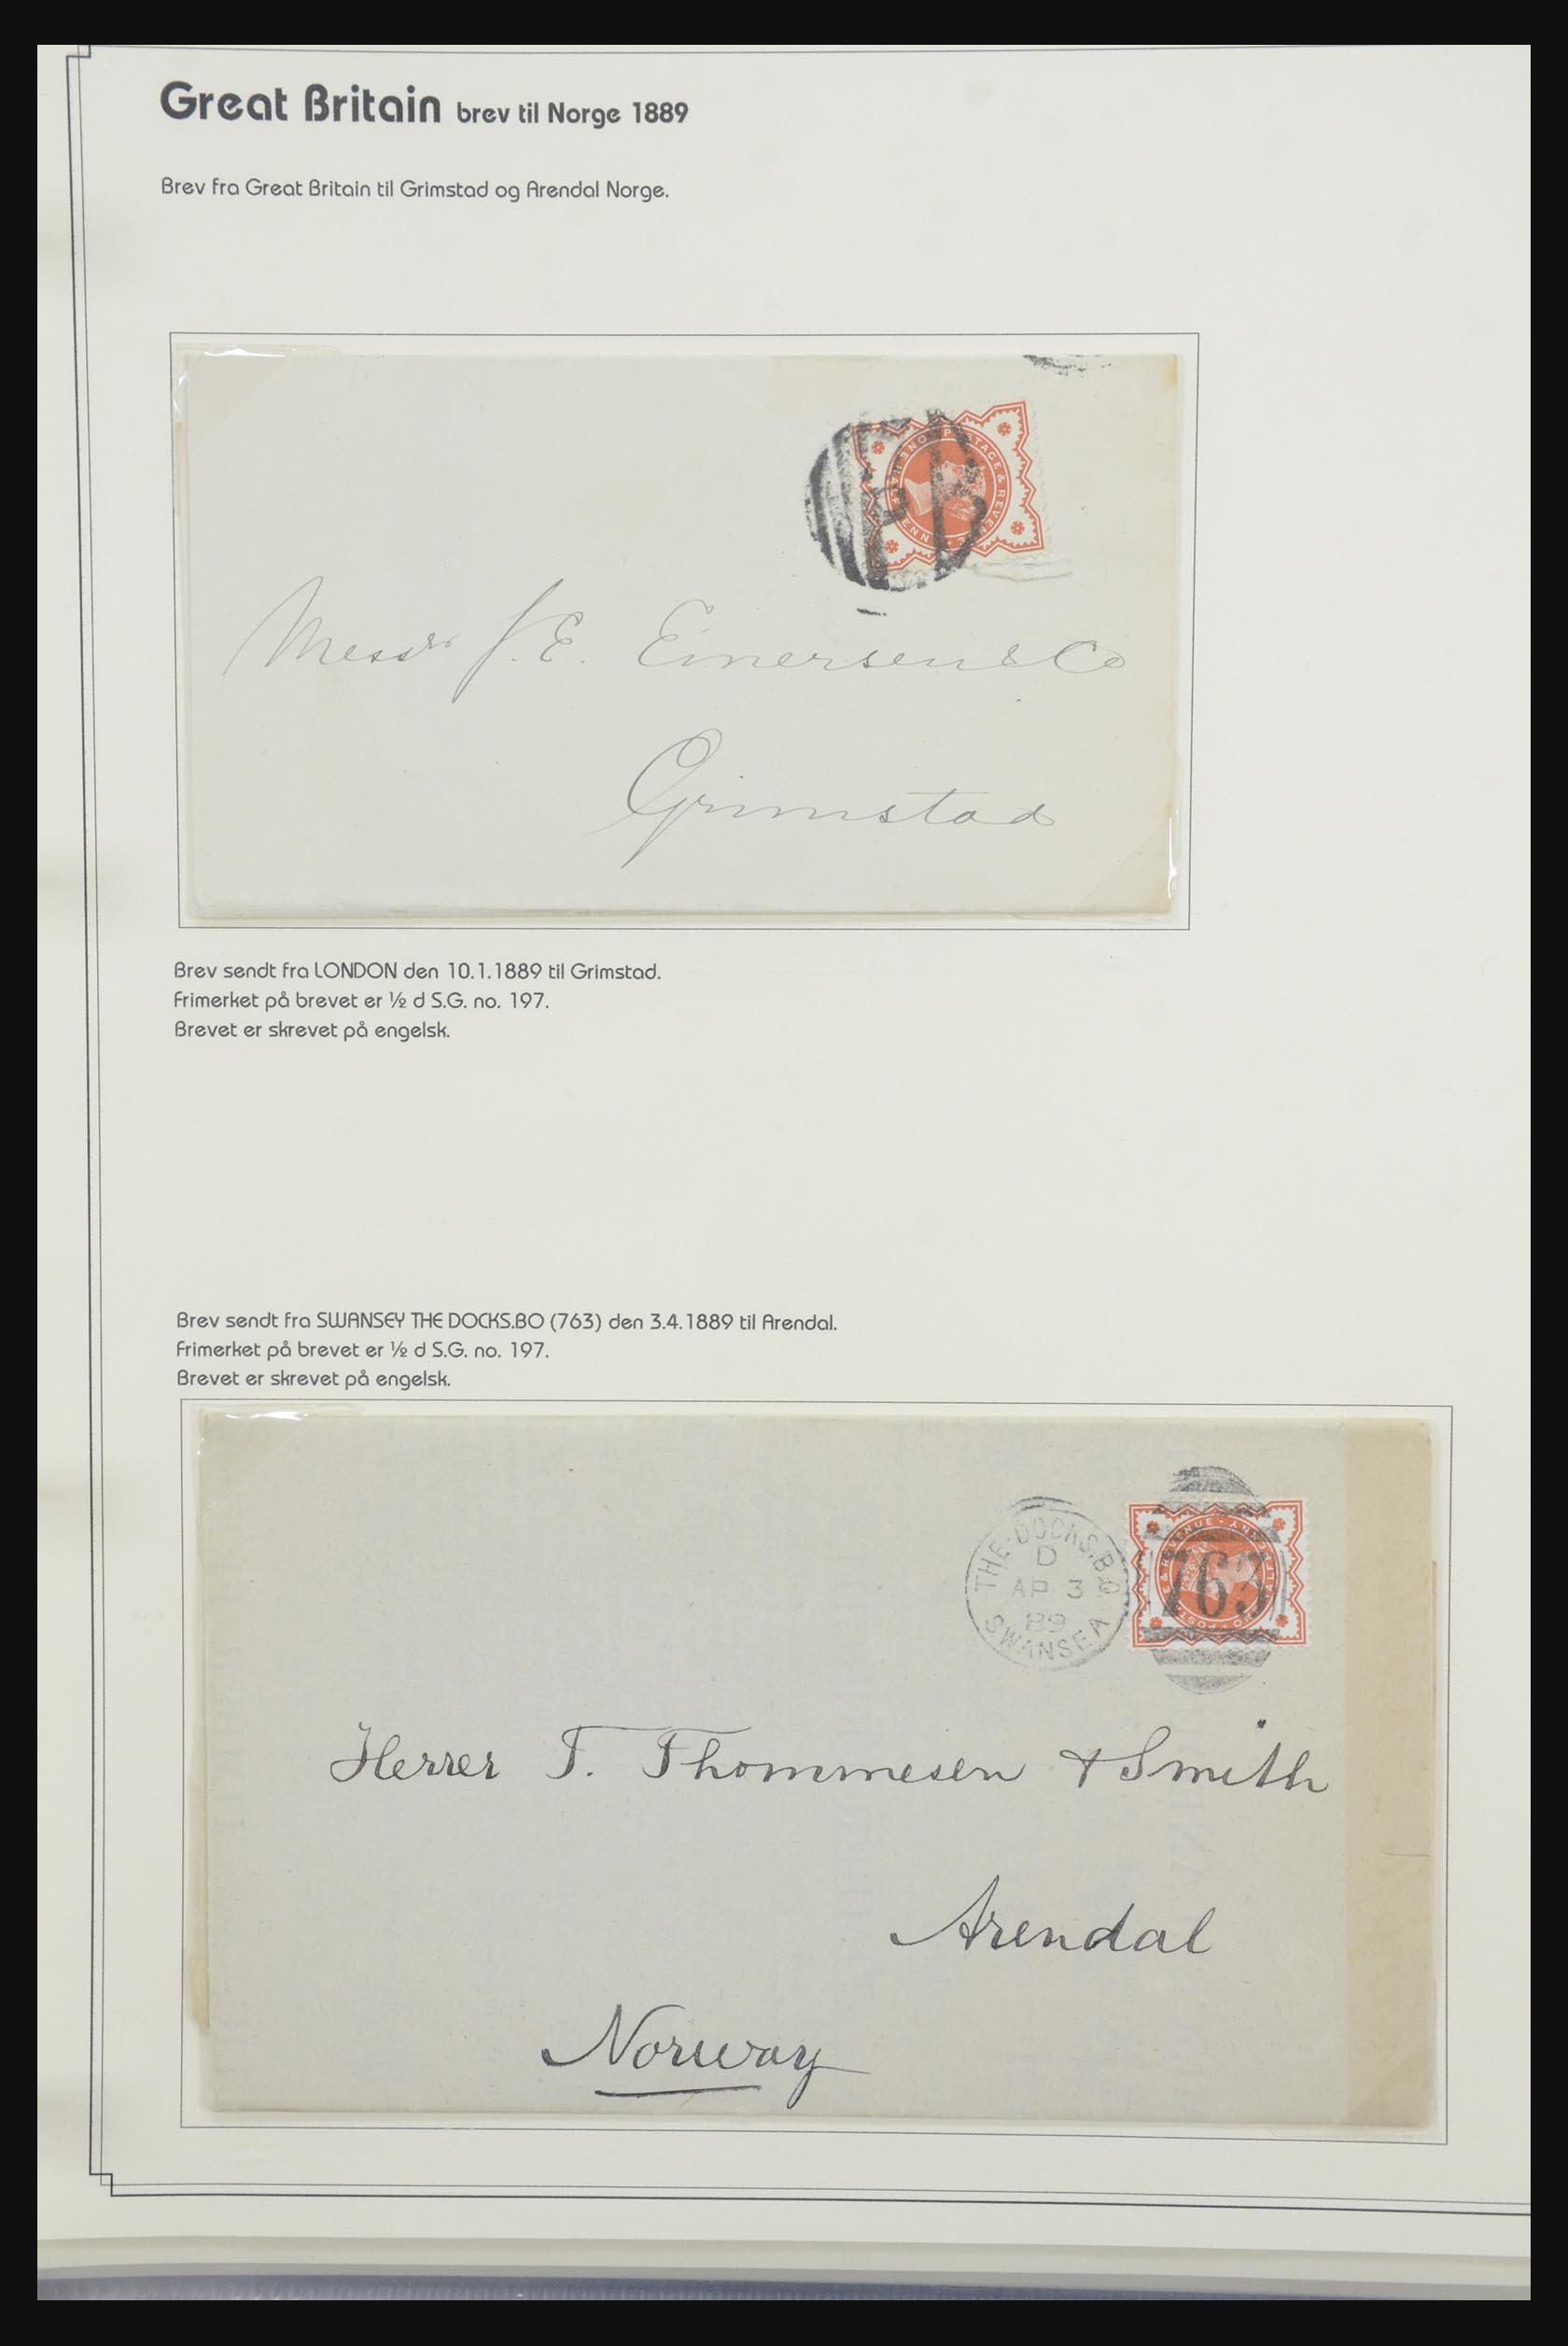 Great Britain brev til Norge 1889
Brev fra Great Britain til Grimstad og Arendal Norge.
B
Messrs J. E. Einersen & Co
Grimstad
Brev sendt fra LONDON den 10.1.1889 til Grimstad.
Frimerket på brevet er ½ d S.G. no. 197.
Brevet er skrevet på engelsk.
Brev sendt fra SWANSEY THE DOCKS.BO (763) den 3.4.1889 til Arendal.
Frimerket på brevet er ½ d S.G. no. 197.
Brevet er skrevet på engelsk.
THE DOCKS.B.O.
D
AP 3
89
SWANSEA
763
Herrer T. Thommesen & Smith
Arendal
Norway